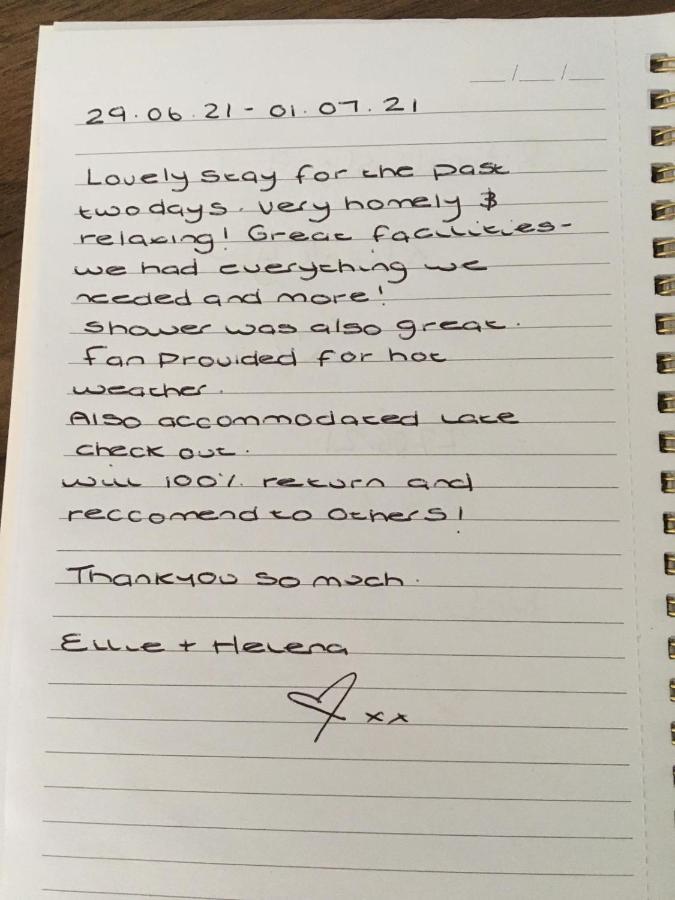 __/__/__
29.06.21 - 01.07.21
Lovely stay for the past
two days. very homely &
relaxing! Great facilities -
we had everything we
needed and more!
Shower was also great.
Fan provided for hot
weather.
Also accommodated late
check out.
will 100% return and
reccomend to others!
Thankyou so much.
Ellie + Helena
xx